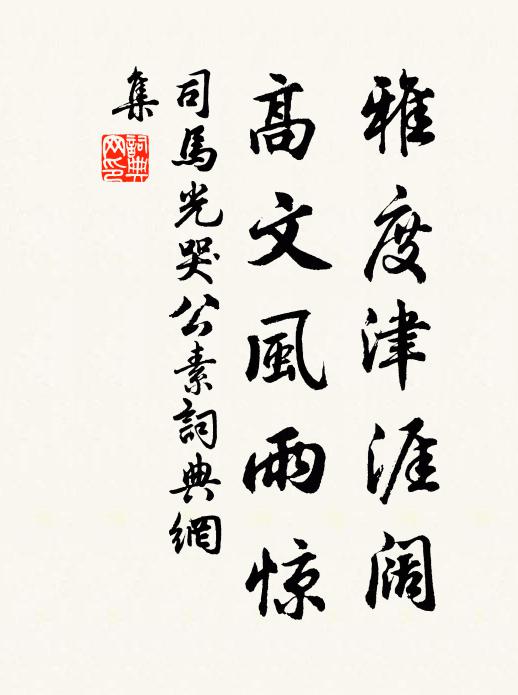 雅度津涯阔
高文風雨惊
司馬光哭公素詞典網
集
詞典
网印